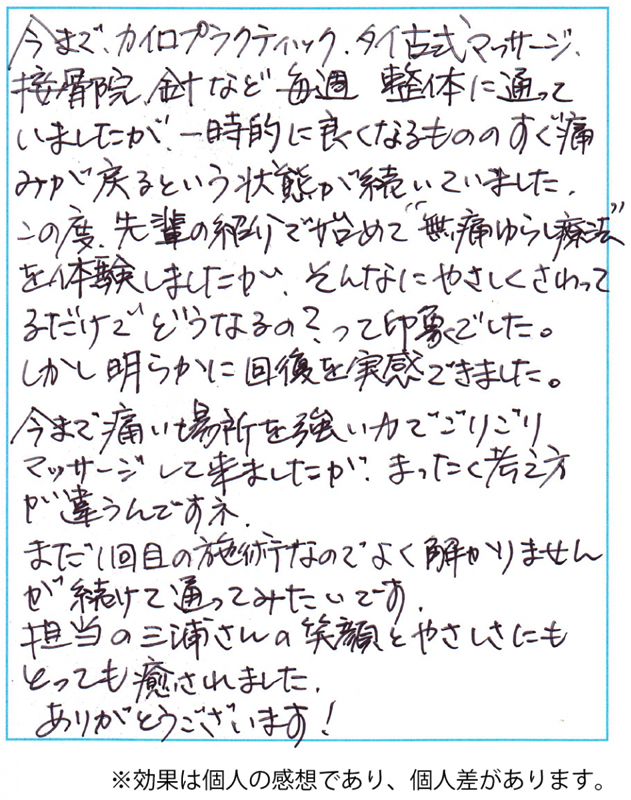 今まで、カイロプラクティック、タイ古式マッサージ、
接骨院、針など毎週 整体に通って
いましたが、一時的に良くなるもののすぐ痛
みが戻るという状態が続いていました。
この度、先輩の紹介で始めて“無痛ゆらし療法”
を体験しましたが、そんなにやさしくさわって
るだけでどうなるの？って印象でした。
しかし明らかに回復を実感できました。
今まで痛い場所を強い力でごりごり
マッサージして来ましたが、まったく考え方
が違うんですネ。
まだ1回目の施術なのでよく解かりません
が続けて通ってみたいです。
担当の三浦さんの笑顔とやさしさにも
とっても癒されました。
ありがとうございます！
※効果は個人の感想であり、個人差があります。